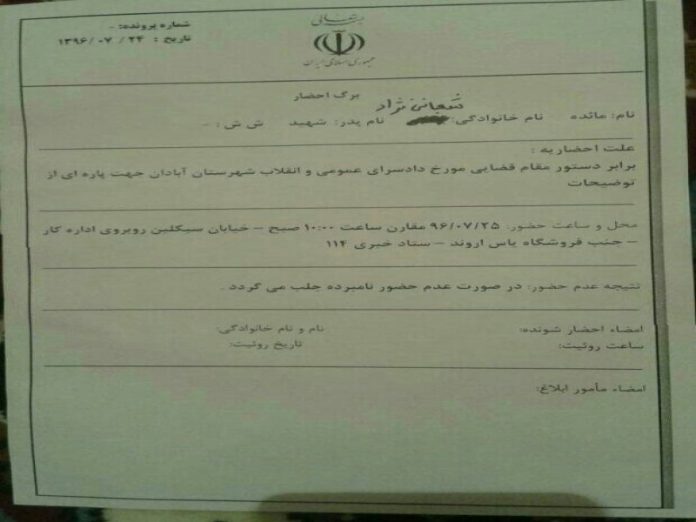 بسمه تعالی
جمهوری اسلامی ایران
شماره پرونده: -
تاریخ : ۱۳۹۶/۰۷/۲۴
برگ احضار
شعبانی نژاد
نام: مائده نام خانوادگی: نام پدر: شهید ش ش : -
علت احضاریه :
برابر دستور مقام قضایی مورخ دادسرای عمومی و انقلاب شهرستان آبادان جهت پاره ای از
توضیحات
محل و ساعت حضور: ۹۶/۰۷/۲۵ مقارن ساعت ۱۰:۰۰ صبح – خیابان سیکلین روبروی اداره کار
– جنب فروشگاه یاس اروند – ستاد خبری ۱۱۴
نتیجه عدم حضور: در صورت عدم حضور نامبرده جلب می گردد .
امضاء احضار شونده: نام و نام خانوادگی:
ساعت روئیت: تاریخ روئیت:
امضاء مأمور ابلاغ: